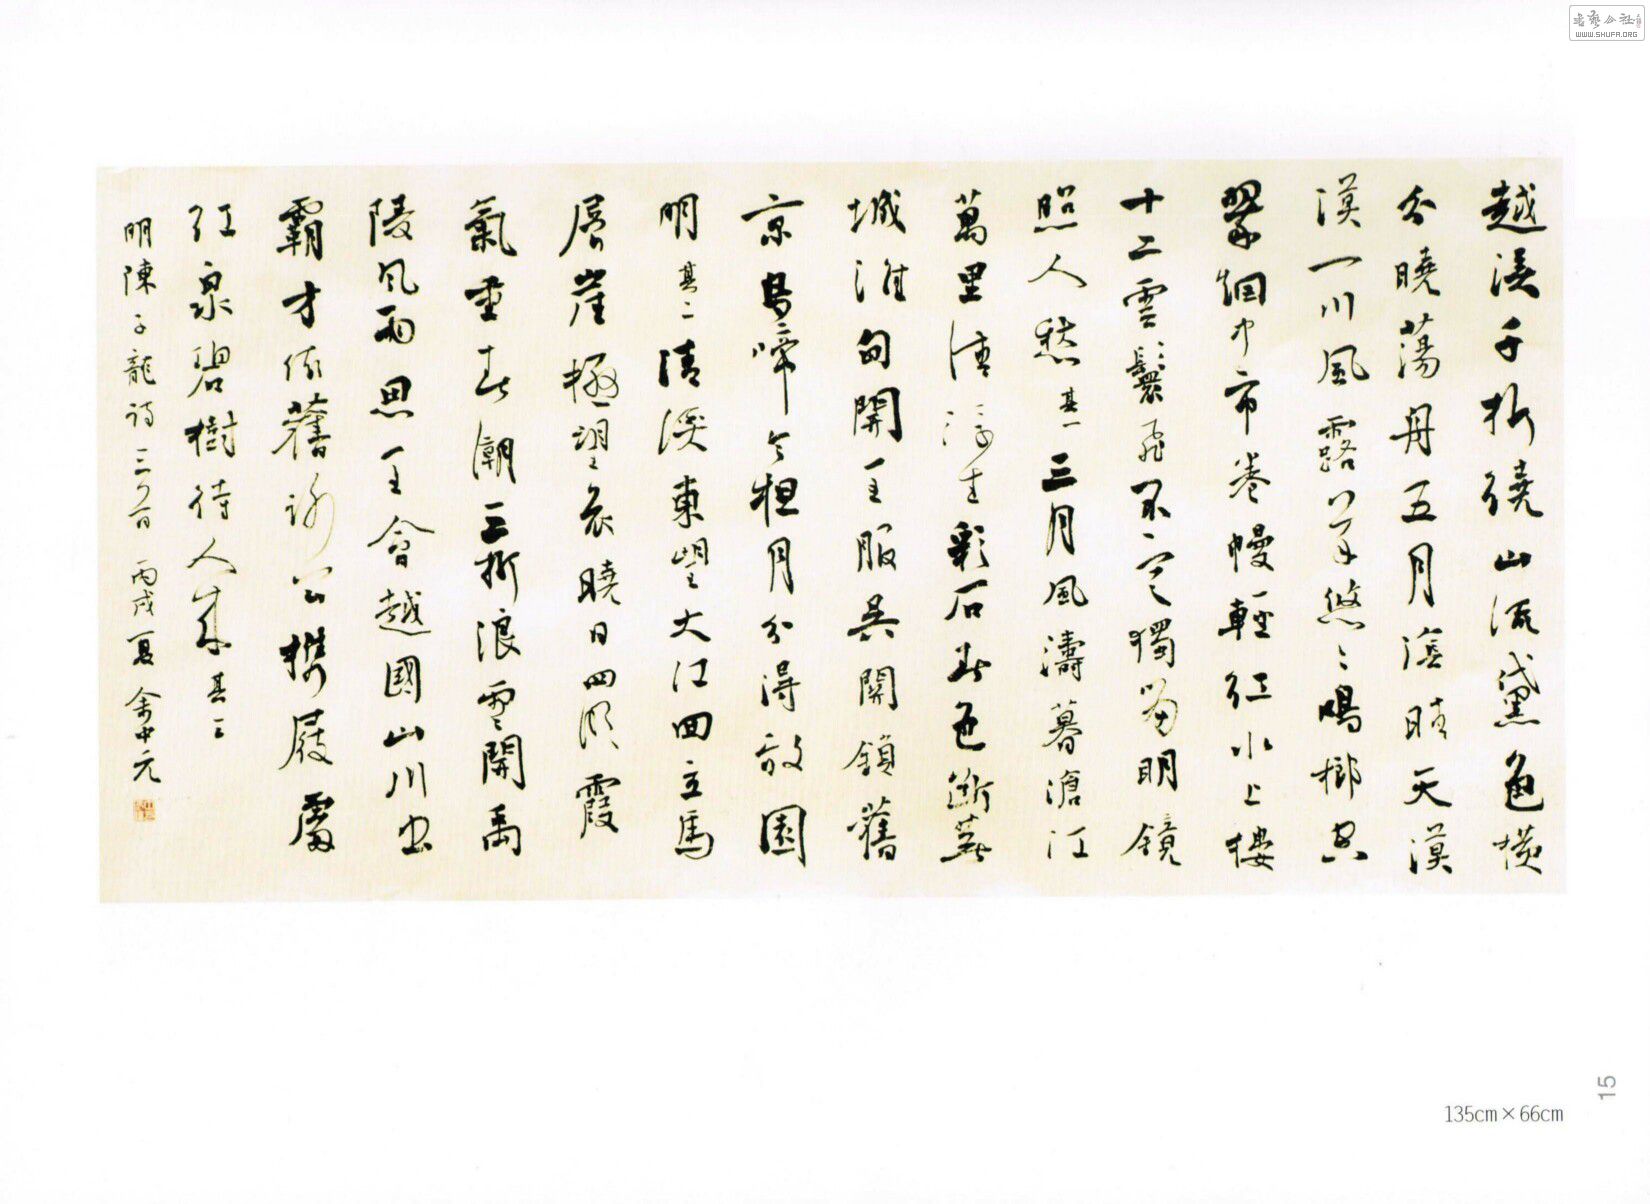 越溪千折繞山流黛色橫
分曉蕩舟五月陰晴天漠
漠一川風露草悠悠鳴榔
翠烟中市卷幔輕紅水上樓
十二雲鬟飛不定獨留明鏡
照人愁其一三月風濤暮滄江
萬里清浮生彩石春色斷蕪
城淮甸開王服吳關鎖舊
京烏啼今夜月分得故園
明其二清溪東望大江回立馬
層崖極望哀曉日四明霞
氣重春潮三折浪雲開禹
陵風雨思王會越國山川出
霸才依舊謝公攜屐處
紅泉碧樹待人來其三
明陳子龍詩三首丙戌夏余中元
書藝公社
WWW.SHUFA.ORG
135cm×66cm
15